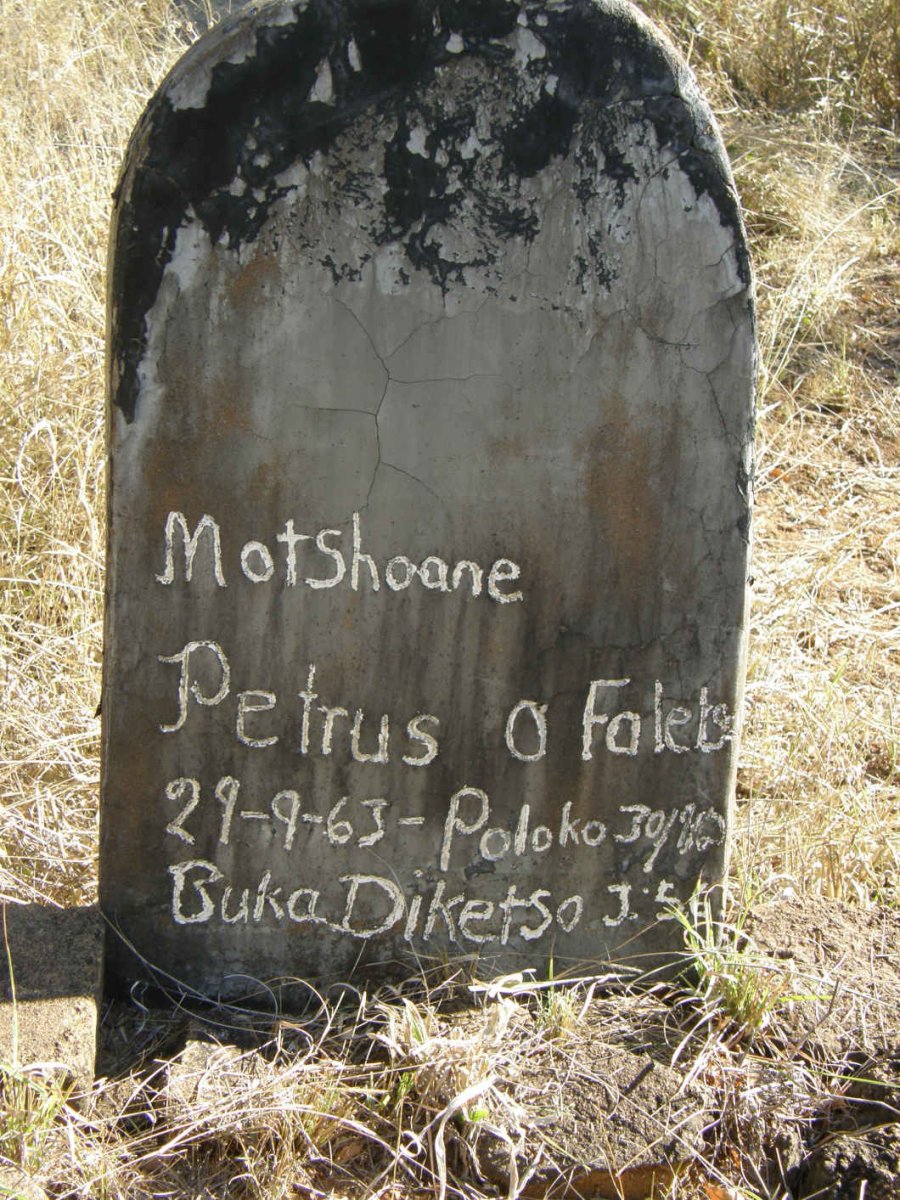 Motshoane
Petrus O Faletse
29-9-63-Poloko
Buka Diketso